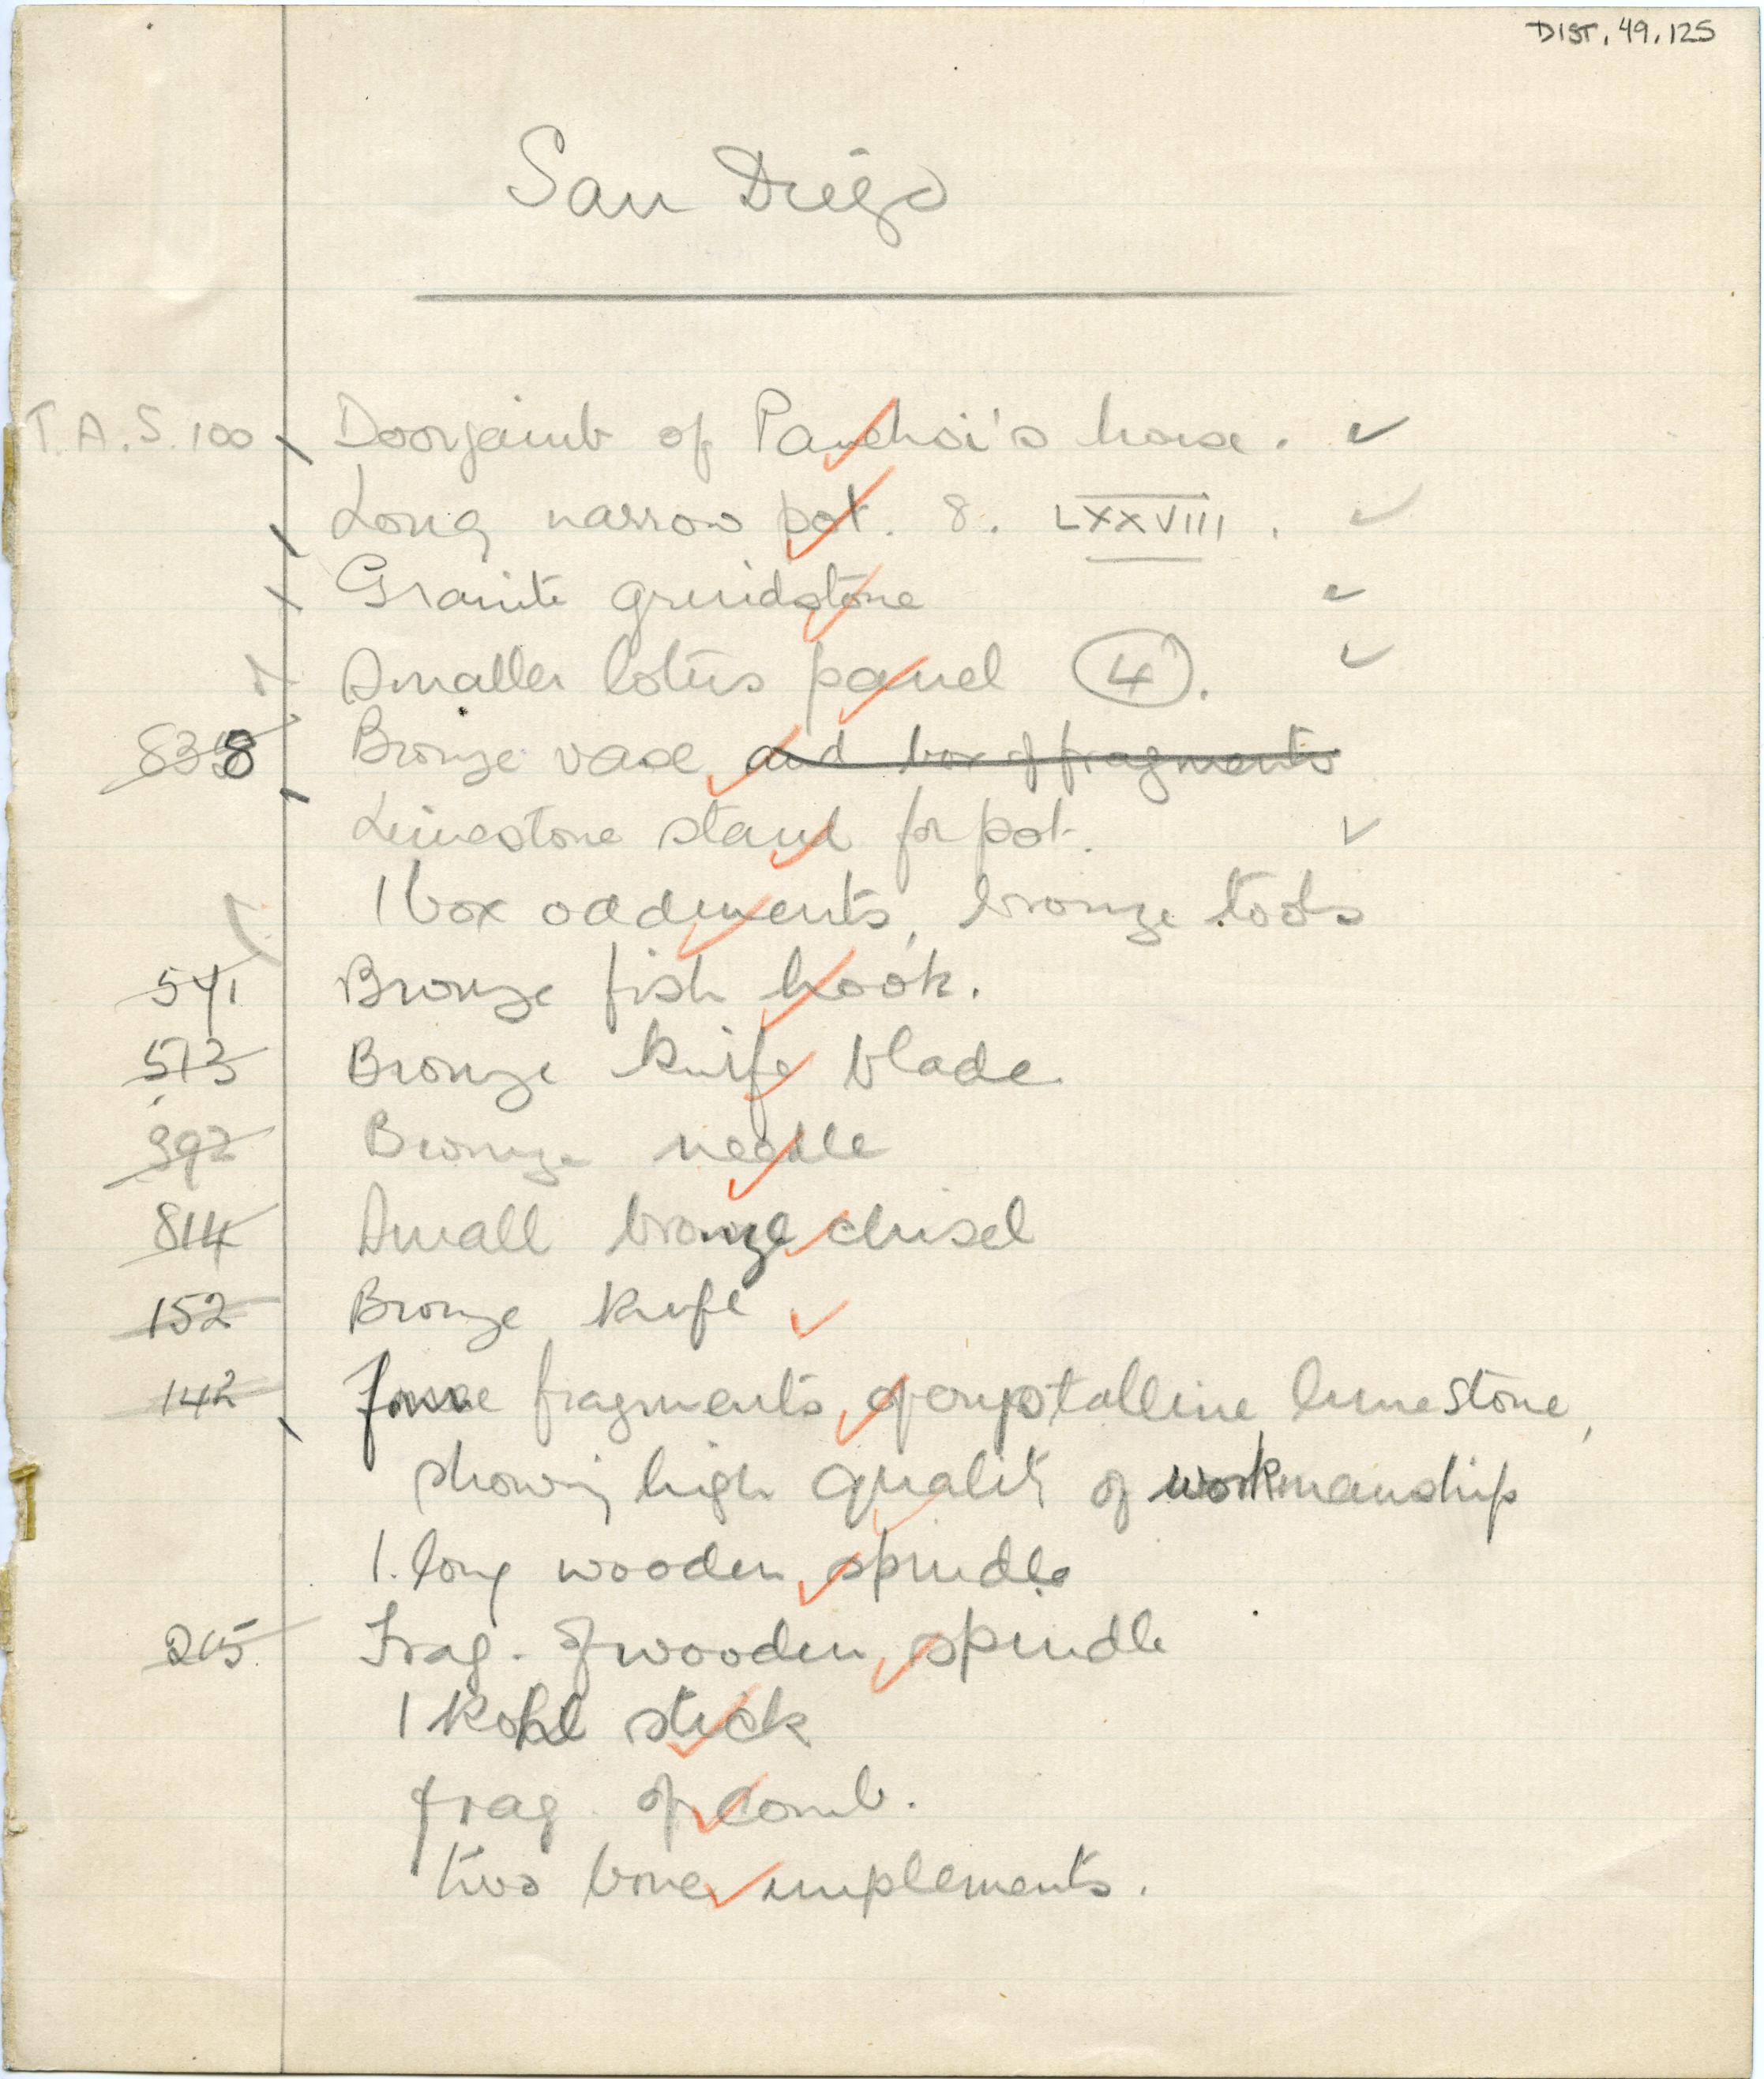 DIST. 49.125
San Diego
T.A.S. 100 Doorjamb of Panehsi's house.
Long narrow pot. 8. LXXVIII.
Granite grindstone
Smaller lotus panel 4.
Bronze vase and box of fragments
Limestone stand for pot.
1 box oddments, bronze tools
541 Bronze fish hook.
513 Bronze knife blade
392 Bronze needle
814 Small bronze chisel
152 Bronze knife
142 fragments of crystalline limestone,
showing high quality of workmanship
1. long wooden spindle
265 Frag. of wooden spindle
1 kohl stick
frag. of comb.
two bone implements.